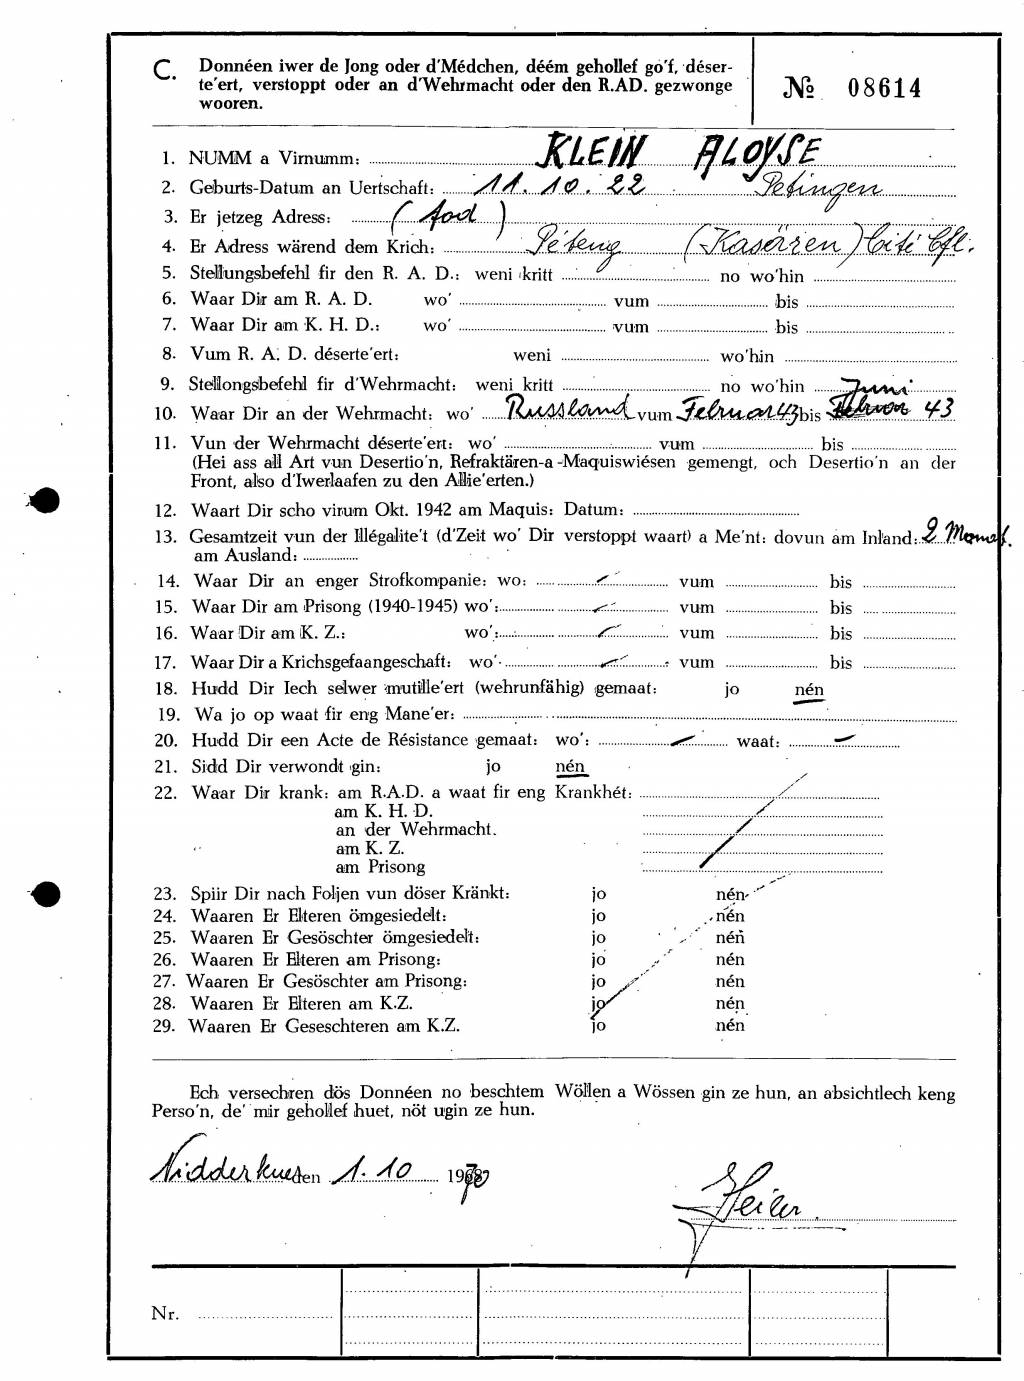 C. Donnéen iwer de Jong oder d'Médchen, déém gehollef go'f, déser-
te'ert, verstoppt oder an d'Wehrmacht oder den R.AD. gezwonge
wooren.
№ 08614
1. NUMM a Virnumm: KLEIN ALOYSE
2. Geburts-Datum an Uertschaft: 11.10.22 Petingen
3. Er jetzeg Adress: (tod)
4. Er Adress wärend dem Krich: Péteng (Kasären) Cité Cfl.
5. Stellungsbefehl fir den R. A. D.: weni kritt no wo'hin
6. Waar Dir am R. A. D. wo' vum bis
7. Waar Dir am K. H. D.: wo' vum bis
8. Vum R. A. D. déserte'ert: weni wo'hin
9. Stellongsbefehl fir d'Wehrmacht: weni kritt no wo'hin
Juni
10. Waar Dir an der Wehrmacht: wo' Russland vum Februar 43 bis Februar 43
11. Vun der Wehrmacht déserte'ert: wo' vum bis
(Hei ass all Art vun Desertio'n, Refraktären-a -Maquiswiésen gemengt, och Desertio'n an der
Front, also d'Iwerlaafen zu den Allie'erten.)
12. Waart Dir scho virum Okt. 1942 am Maquis: Datum:
13. Gesamtzeit vun der Illégalite't (d'Zeit wo' Dir verstoppt waart) a Me'nt: dovun am Inland: 2 Monat.
am Ausland:
14. Waar Dir an enger Strofkompanie: wo: vum bis
15. Waar Dir am Prisong (1940-1945) wo': vum bis
16. Waar Dir am K. Z.: wo': vum bis
17. Waar Dir a Krichsgefaangeschaft: wo' vum bis
18. Hudd Dir Iech selwer mutille'ert (wehrunfähig) gemaat: jo nén
19. Wa jo op waat fir eng Mane'er:
20. Hudd Dir een Acte de Résistance gemaat: wo': waat:
21. Sidd Dir verwondt gin: jo nén
22. Waar Dir krank: am R.A.D. a waat fir eng Krankhét:
am K. H. D.
an der Wehrmacht.
am K. Z.
am Prisong
23. Spiir Dir nach Foljen vun döser Kränkt: jo nén
24. Waaren Er Elteren ömgesiedelt: jo nén
25. Waaren Er Gesöschter ömgesiedelt: jo nén
26. Waaren Er Elteren am Prisong: jo nén
27. Waaren Er Gesöschter am Prisong: jo nén
28. Waaren Er Elteren am K.Z. jo nén
29. Waaren Er Geseschteren am K.Z. jo nén
Ech versechren dös Donnéen no beschtem Wöllen a Wössen gin ze hun, an absichtlech keng
Perso'n, de' mir gehollef huet, nöt ugin ze hun.
Nidderkuer den 1.10 1970
Nr.